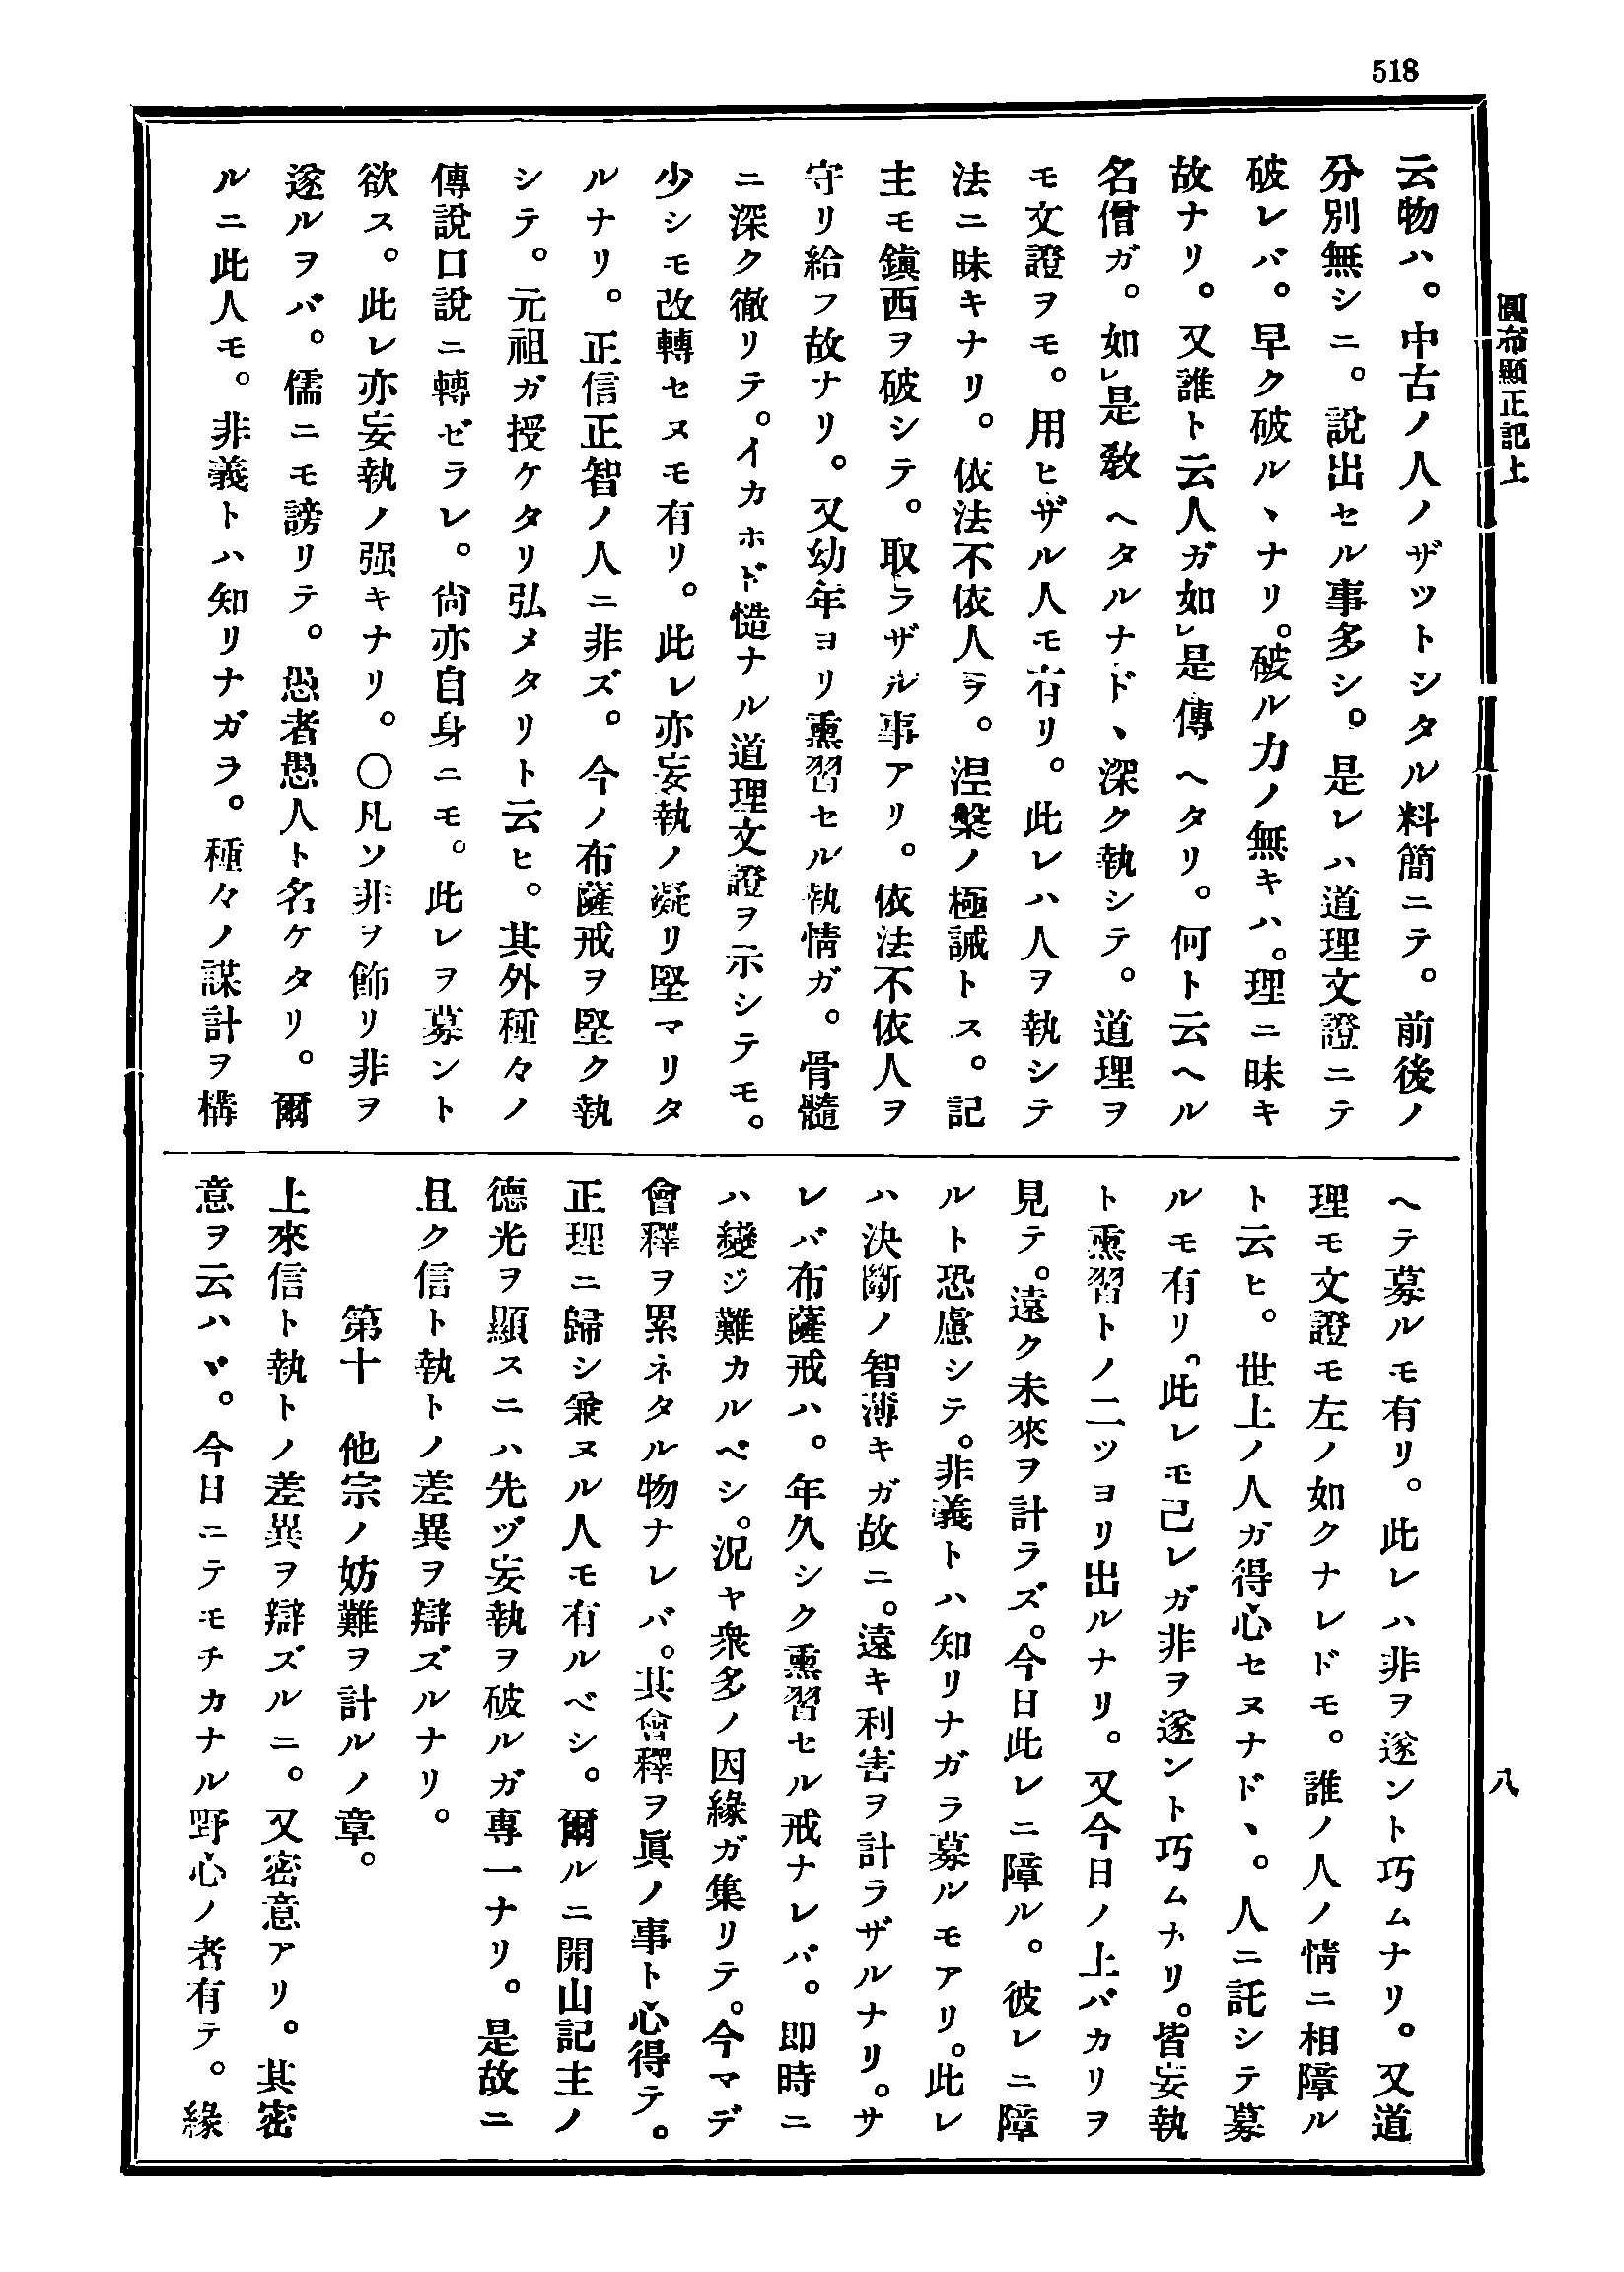 518
圓布顯正記上
八
云物ハ。中古ノ人ノザットシタル料簡ニテ。前後ノ
分別無シニ。說出セル事多シ。是レハ道理文證ニテ
破レバ。早ク破ルヽナリ。破ル力ノ無キハ。理ニ昧キ
故ナリ。又誰ト云人ガ如㆑是傳ヘタリ。何ト云ヘル
名僧ガ。如㆑是敎ヘタルナドヽ深ク執シテ。道理ヲ
モ文證ヲモ。用ヒザル人モ有リ。此レハ人ヲ執シテ
法ニ昧キナリ。依法不依人ヲ。涅槃ノ極誡トス。記
主モ鎭西ヲ破シテ。取ラザル事アリ。依法不依人ヲ
守リ給フ故ナリ。又幼年ヨリ熏習セル執情ガ。骨髓
ニ深ク徹リテ。イカホド慥ナル道理文證ヲ示シテモ。
少シモ改轉セヌモ有リ。此レ亦妄執ノ凝リ堅マリタ
ルナリ。正信正智ノ人ニ非ズ。今ノ布薩戒ヲ堅ク執
シテ。元祖ガ授ケタリ弘メタリト云ヒ。其外種々ノ
傳說口說ニ轉ゼラレ。尙亦自身ニモ。此レヲ募ント
欲ス。此レ亦妄執ノ强キナリ。〇凡ソ非ヲ飾リ非ヲ
遂ルヲバ。儒ニモ謗リテ。愚者愚人ト名ケタリ。爾
ルニ此人モ。非義トハ知リナガラ。種々ノ謀計ヲ構
ヘテ募ルモ有リ。此レハ非ヲ遂ント巧ムナリ。又道
理モ文證モ左ノ如クナレドモ。誰ノ人ノ情ニ相障ル
ト云ヒ。世上ノ人ガ得心セヌナドヽ。人ニ託シテ募
ルモ有リ。此レモ己レガ非ヲ遂ント巧ムナリ。皆妄執
ト熏習トノ二ツヨリ出ルナリ。又今日ノ上バカリヲ
見テ。遠ク未來ヲ計ラズ。今日此レニ障ル。彼レニ障
ルト恐慮シテ。非義トハ知リナガラ募ルモアリ。此レ
ハ決斷ノ智薄キガ故ニ。遠キ利害ヲ計ラザルナリ。サ
レバ布薩戒ハ。年久シク熏習セル戒ナレバ。即時ニ
ハ變ジ難カルベシ。況ヤ衆多ノ因緣ガ集リテ。今マデ
會釋ヲ累ネタル物ナレバ。其會釋ヲ眞ノ事ト心得テ。
正理ニ歸シ兼ヌル人モ有ルベシ。爾ルニ開山記主ノ
德光ヲ顯スニハ先ヅ妄執ヲ破ルガ專一ナリ。是故ニ
且ク信ト執トノ差異ヲ辯ズルナリ。
第十　他宗ノ妨難ヲ計ルノ章。
上來信ト執トノ差異ヲ辯ズルニ。又密意アリ。其密
意ヲ云ハヾ。今日ニテモチカナル野心ノ者有テ。緣